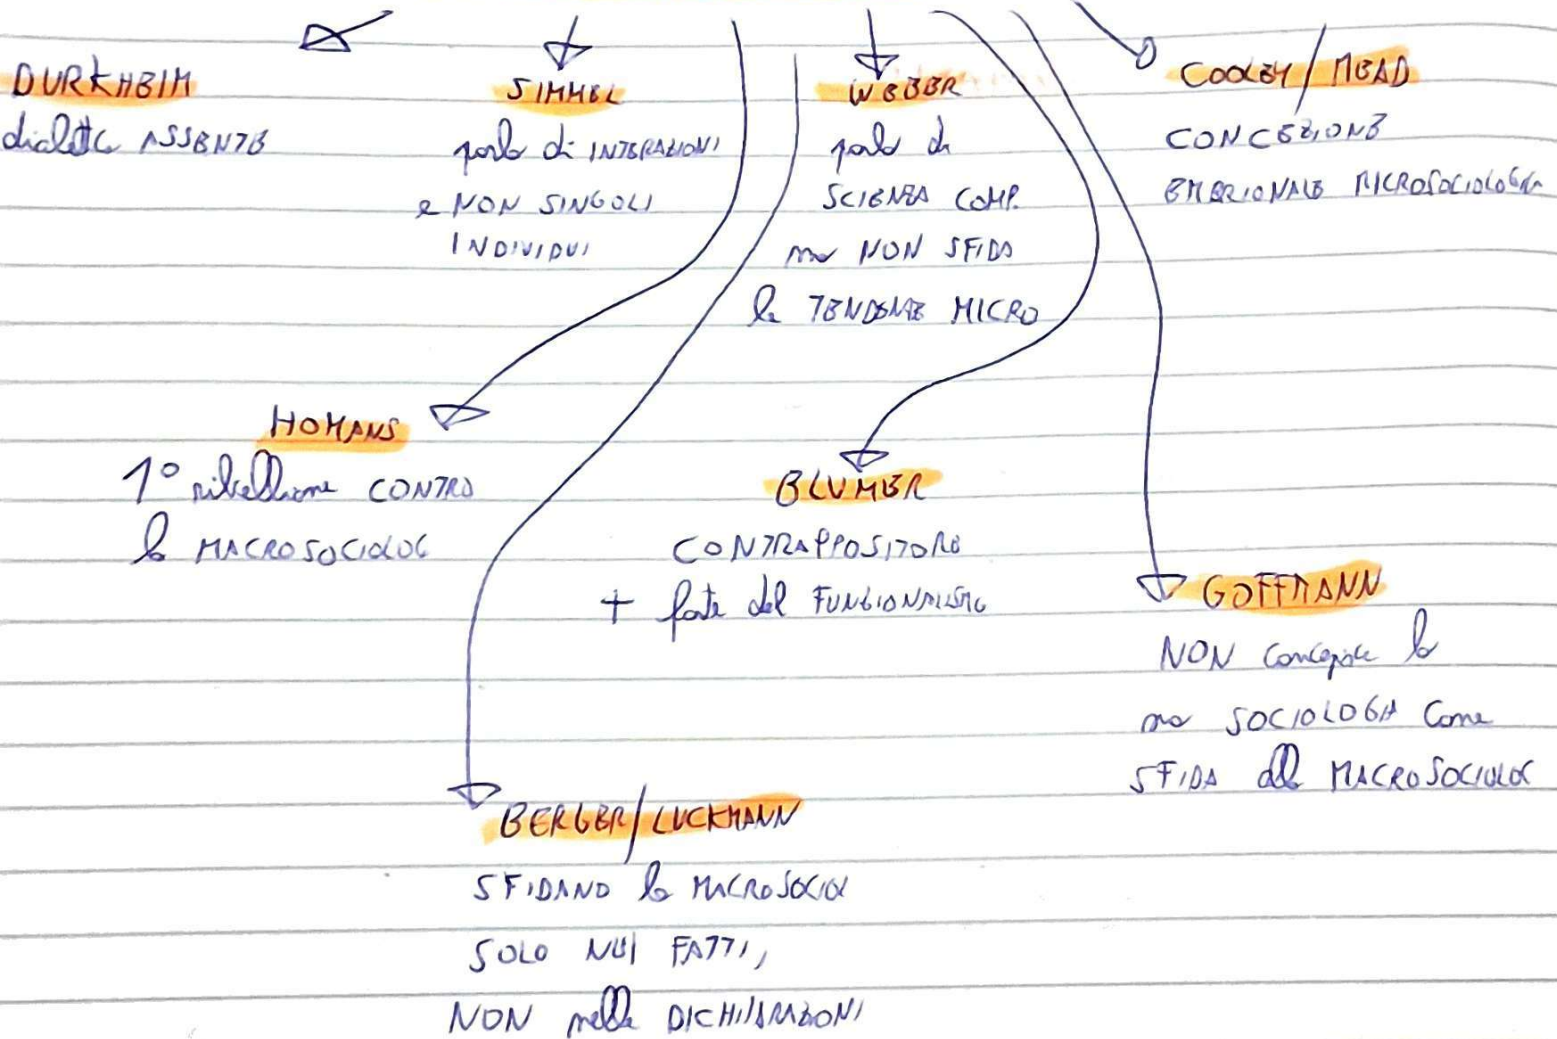 DURKHEIM
dialettica ASSENTE
SIMMEL
parla di INTERAZIONI
e NON SINGOLI
INDIVIDUI
WEBER
parla di
SCIENZA COMP.
ma NON SFIDA
le TENDENZE MICRO
COOLEY / MEAD
CONCEZIONE
EMBRIONALE MICROSOCIOLOGIA
HOMANS
1° ribellione CONTRO
la MACROSOCIOLOG
BLUMER
CONTRAPPOSITORE
+ forte del FUNZIONALISMO
GOFFMANN
NON concepisce la
sua SOCIOLOGIA come
SFIDA alla MACROSOCIOLOG
BERGER/LUCKMANN
SFIDANO la MACROSOCIOL
SOLO NEI FATTI,
NON nelle DICHIARAZIONI